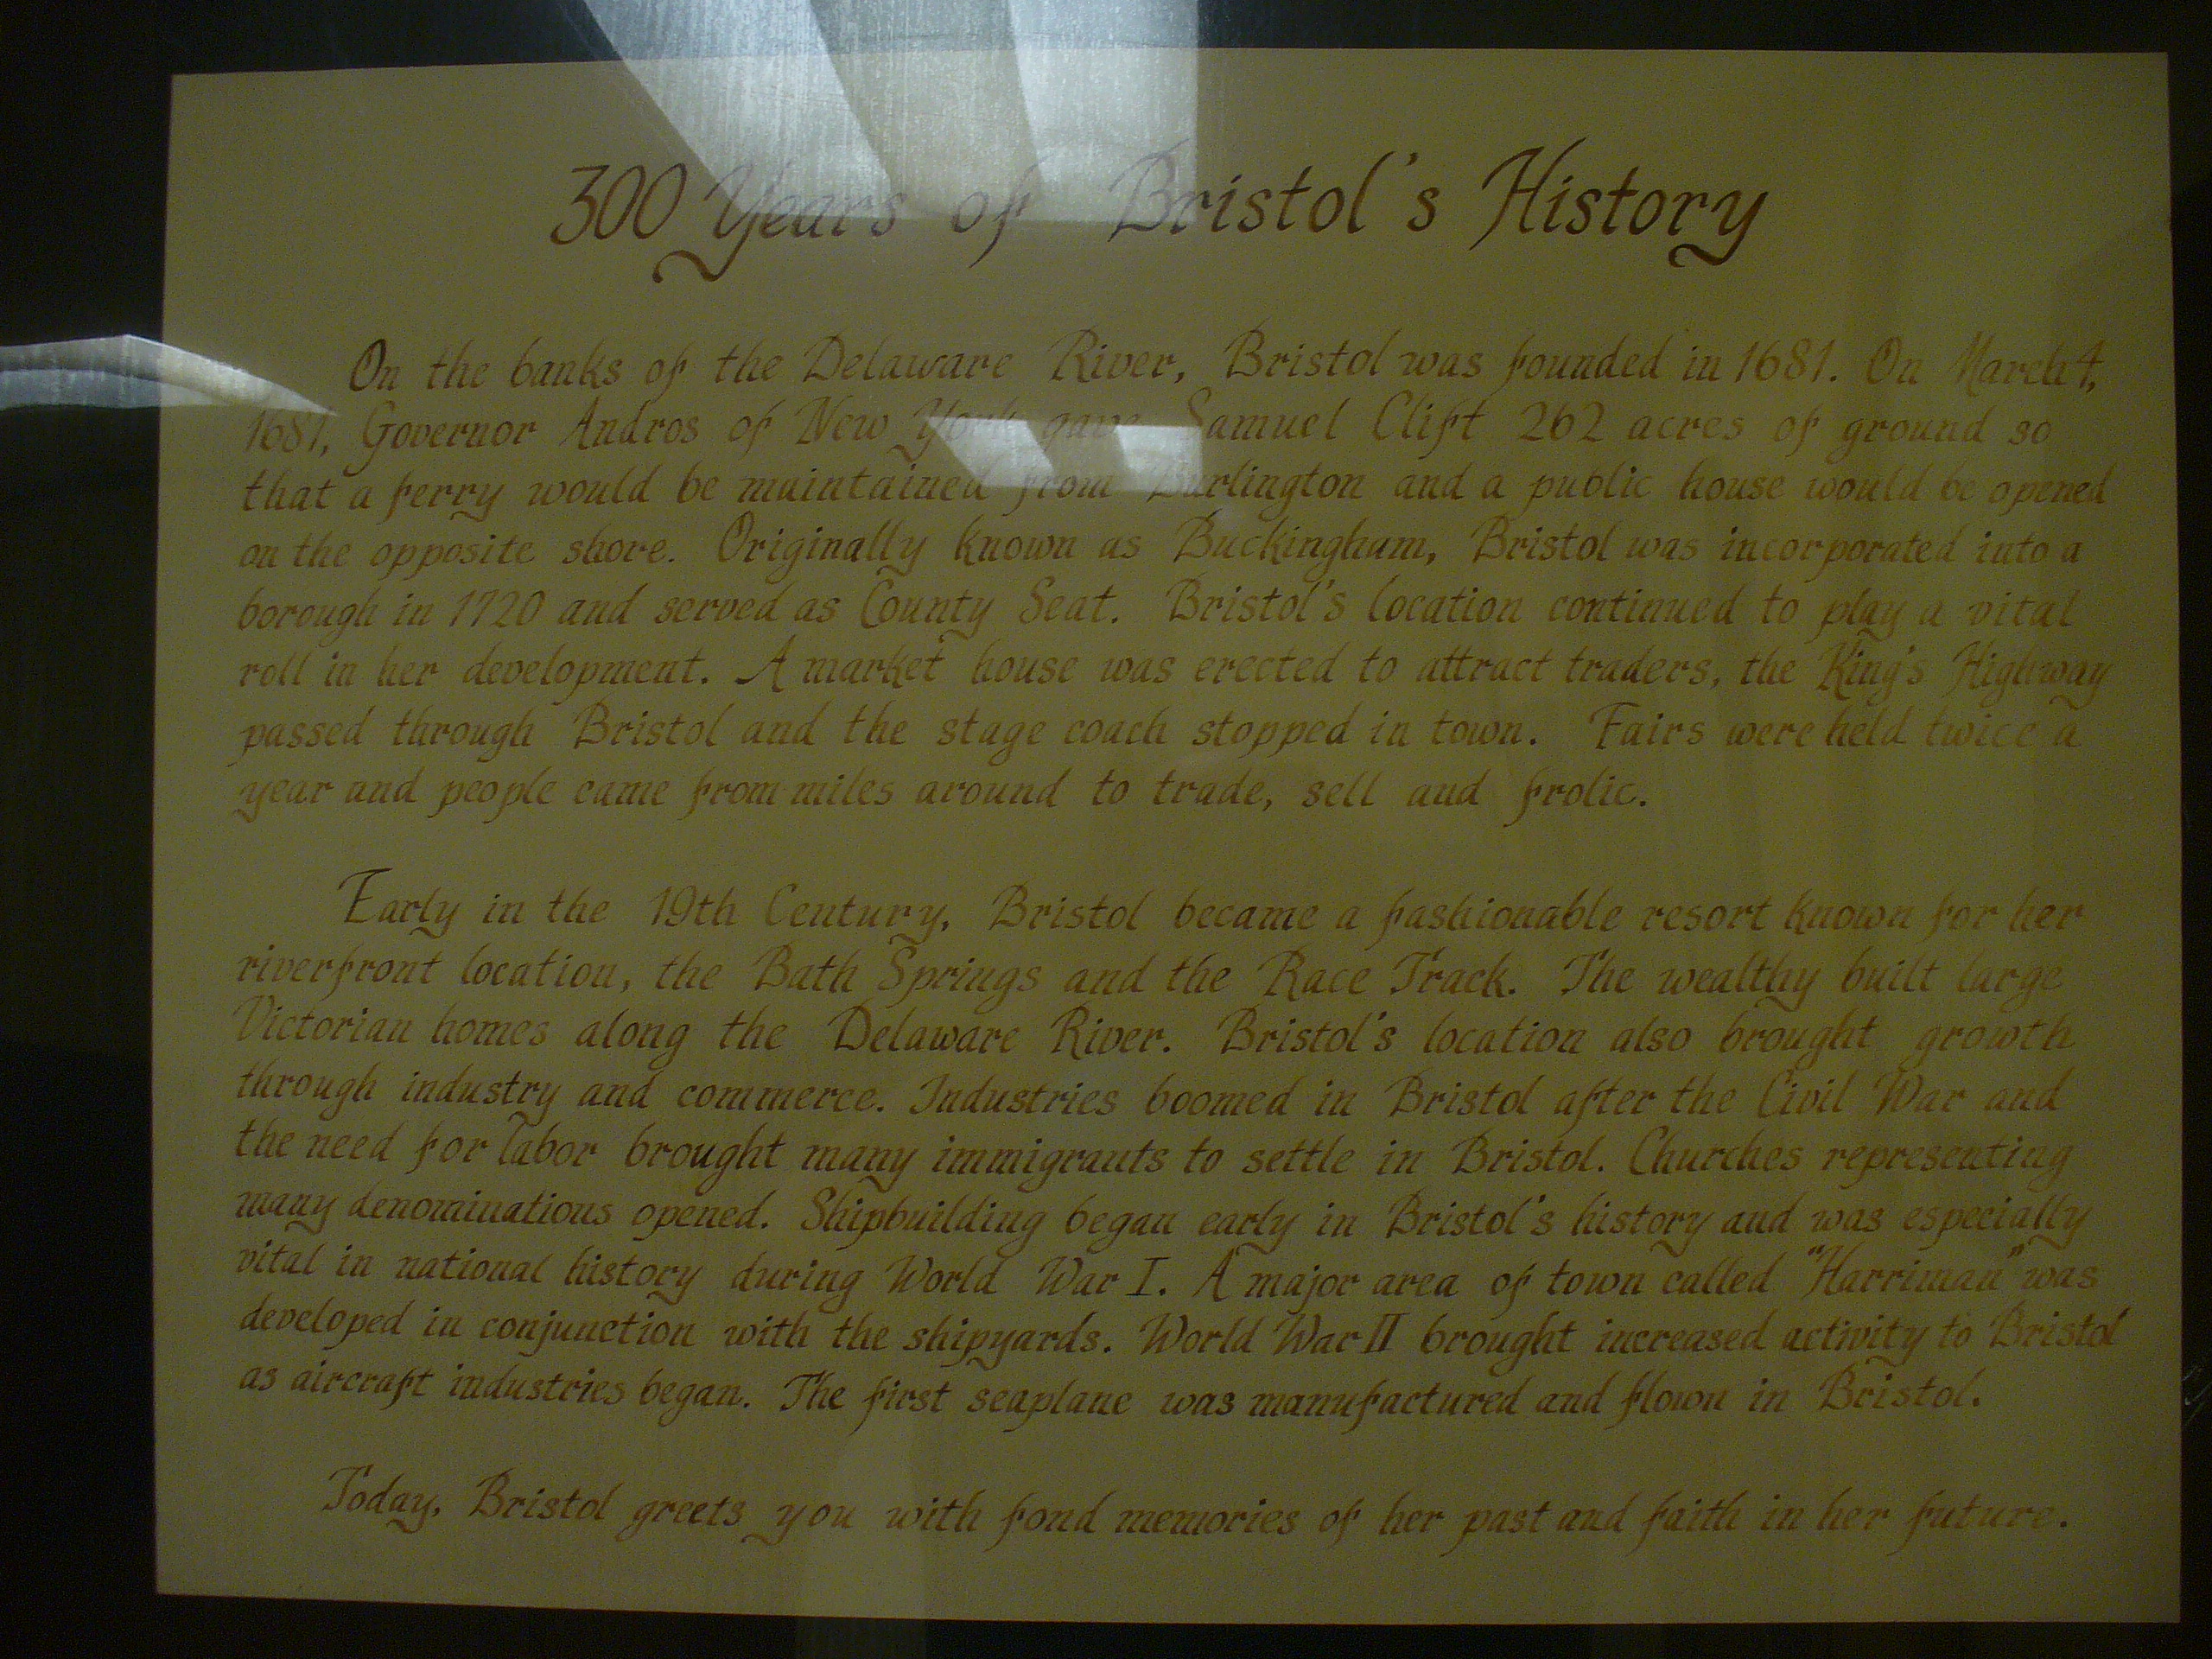 300 Years of Bristol's History
On the banks of the Delaware River, Bristol was founded in 1681. On March 4,
1681, Governor Andros of New York gave Samuel Clift 262 acres of ground so
that a ferry would be maintained from Burlington and a public house would be opened
on the opposite shore. Originally known as Buckingham, Bristol was incorporated into a
borough in 1720 and served as County Seat. Bristol's location continued to play a vital
roll in her development. A market house was erected to attract traders, the King's Highway
passed through Bristol and the stage coach stopped in town. Fairs were held twice a
year and people came from miles around to trade, sell and frolic.
Early in the 19th Century, Bristol became a fashionable resort known for her
riverfront location, the Bath Springs and the Race Track. The wealthy built large
Victorian homes along the Delaware River. Bristol's location also brought growth
through industry and commerce. Industries boomed in Bristol after the Civil War and
the need for labor brought many immigrants to settle in Bristol. Churches representing
many denominations opened. Shipbuilding began early in Bristol's history and was especially
vital in national history during World War I. A major area of town called "Harriman" was
developed in conjunction with the shipyards. World War II brought increased activity to Bristol
as aircraft industries began. The first seaplane was manufactured and flown in Bristol.
Today, Bristol greets you with fond memories of her past and faith in her future.